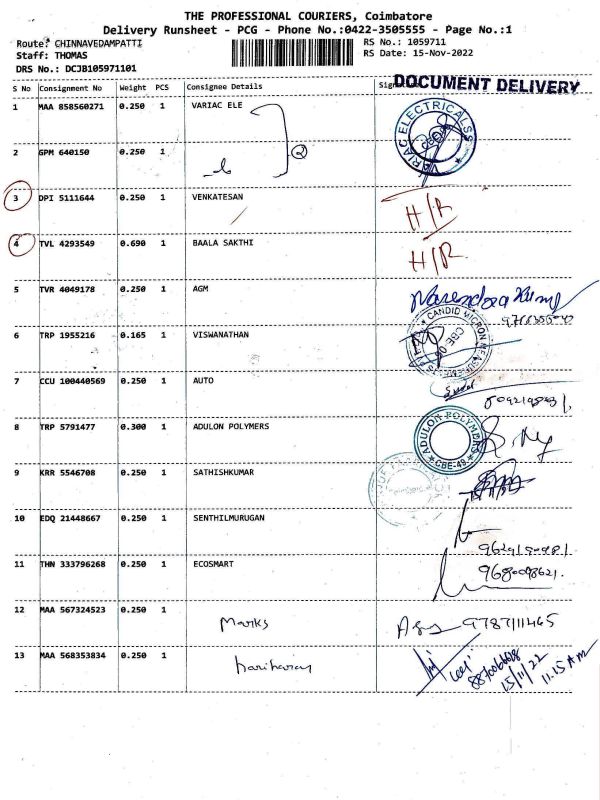 THE PROFESSIONAL COURIERS, Coimbatore
Delivery Runsheet - PCG - Phone No.:0422-3505555 - Page No.:1
Route: CHINNAVEDAMPATTI
RS No.: 1059711
Staff: THOMAS
RS Date: 15-Nov-2022
DRS No.: DCJB105971101
S No Consignment No Weight PCS Consignee Details
DOCUMENT DELIVERY
1 MAA 858560271 0.250 1 VARIAC ELE
VARIAC ELECTRICALSS
2 GPM 640150 0.250 1
2
3 DPI 5111644 0.250 1 VENKATESAN H/R
4 TVL 4293549 0.690 1 BAALA SAKTHI H/R
5 TVR 4049178 0.250 1 AGM
6 TRP 1955216 0.165 1 VISWANATHAN
CANDID MICRON MEASUREMENTS
7 CCU 100440569 0.250 1 AUTO
8 TRP 5791477 0.300 1 ADULON POLYMERS
ADULON POLYMERS
CBE-49
9 KRR 5546708 0.250 1 SATHISHKUMAR
10 EDQ 21448667 0.250 1 SENTHILMURUGAN
11 THN 333796268 0.250 1 ECOSMART
12 MAA 567324523 0.250 1 Marks 9787111465
13 MAA 568353834 0.250 1 hariharan
15/11/22
11.15 AM